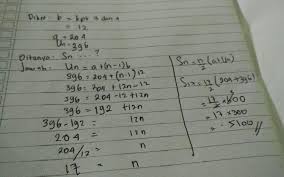 Diket : b = kpt 3 dan 4
= 12
a = 204
Un = 396
Ditanya: Sn ... ?
Jawab: Un = a + (n-1) b
396 = 204 + (n-1) 12
396 = 204 + 12n - 12
396 = 204 - 12 + 12n
396 = 192 + 12n
396 - 192 = 12n
204 = 12n
204/12 = n
17 = n
Sn = n/2 (a + Un)
S17 = 17/2 (204 + 396)
= 17/2 x 600
= 17 x 300
= 5100